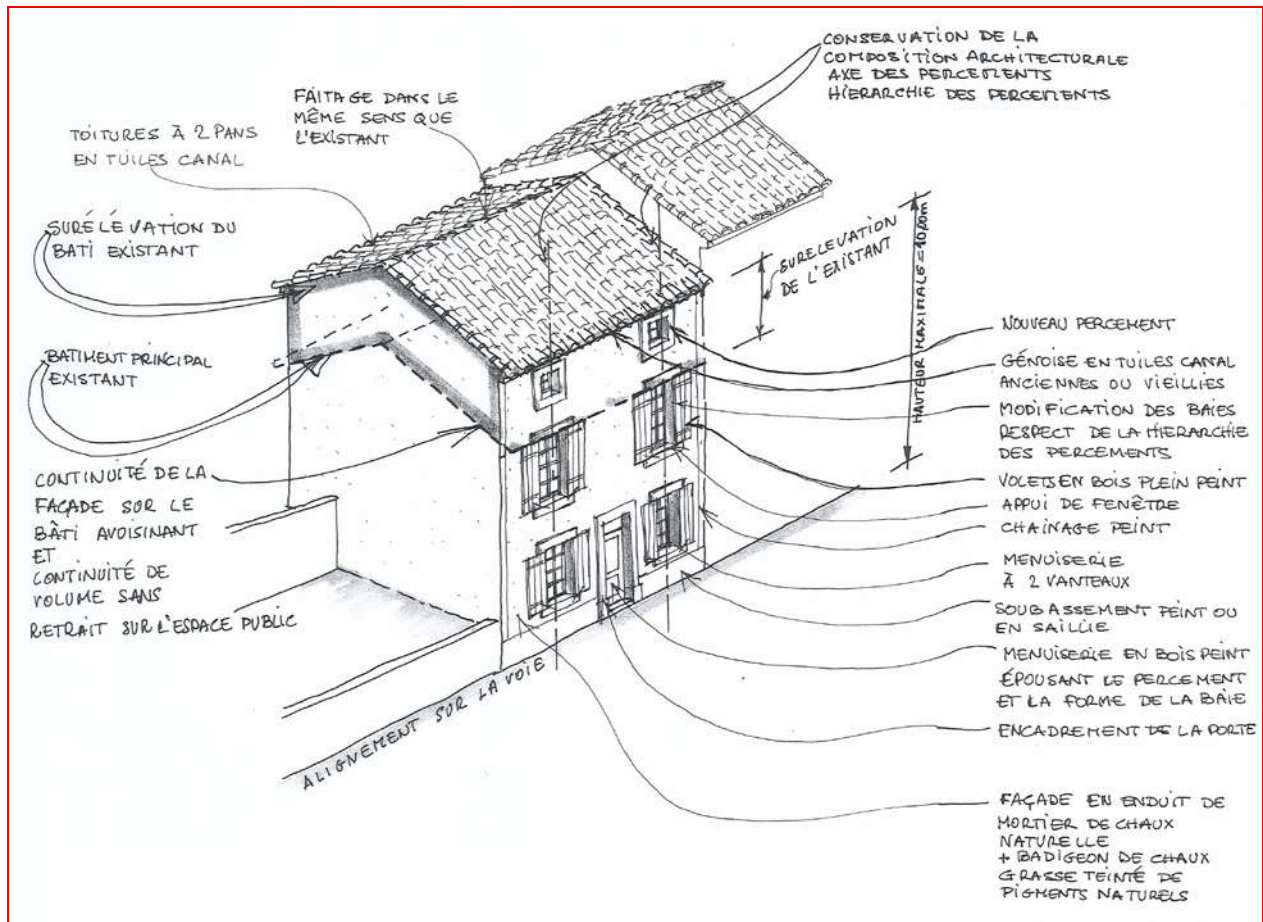 CONSERVATION DE LA
COMPOSITION ARCHITECTURALE
AXE DES PERCEMENTS
HIERARCHIE DES PERCEMENTS
FAITAGE DANS LE
MÊME SENS QUE
L'EXISTANT
TOITURES À 2 PANS
EN TUILES CANAL
SURÉLÉVATION DU
BATI EXISTANT
BATIMENT PRINCIPAL
EXISTANT
CONTINUITÉ DE LA
FAÇADE SUR LE
BÂTI AVOISINANT
ET
CONTINUITÉ DE
VOLUME SANS
RETRAIT SUR L'ESPACE PUBLIC
ALIGNEMENT SUR LA VOIE
SURELEVATION
DE L'EXISTANT
HAUTEUR MAXIMALE = 10,00m
NOUVEAU PERCEMENT
GÉNOISE EN TUILES CANAL
ANCIENNES OU VIEILLIES
MODIFICATION DES BAIES
RESPECT DE LA HIERARCHIE
DES PERCEMENTS
VOLETS EN BOIS PLEIN PEINT
APPUI DE FENÊTRE
CHAINAGE PEINT
MENUISERIE
À 2 VANTEAUX
SOUBASSEMENT PEINT OU
EN SAILLIE
MENUISERIE EN BOIS PEINT
ÉPOUSANT LE PERCEMENT
ET LA FORME DE LA BAIE
ENCADREMENT DE LA PORTE
FAÇADE EN ENDUIT DE
MORTIER DE CHAUX
NATURELLE
+ BADIGEON DE CHAUX
GRASSE TEINTÉ DE
PIGMENTS NATURELS